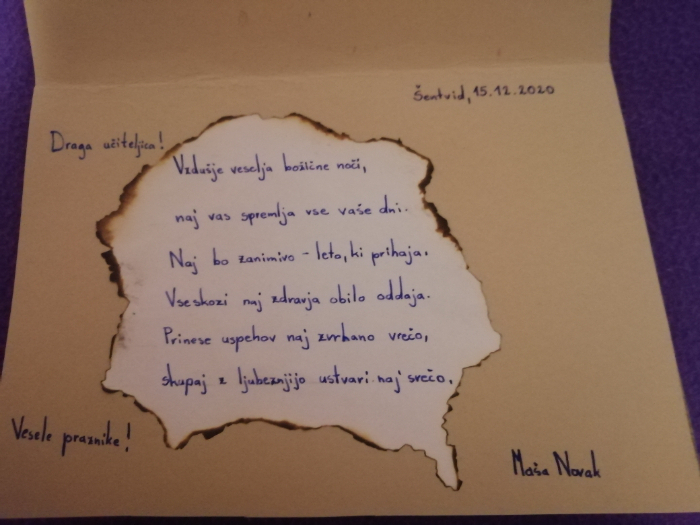 Šentvid, 15.12.2020
Draga učiteljica!
Vzdušje veselja božične noči,
naj vas spremlja vse vaše dni.
Naj bo zanimivo - leto, ki prihaja.
Vseskozi naj zdravja obilo oddaja.
Prinese uspehov naj zvrhano vrečo,
skupaj z ljubeznijo ustvari naj srečo.
Vesele praznike!
Maša Novak